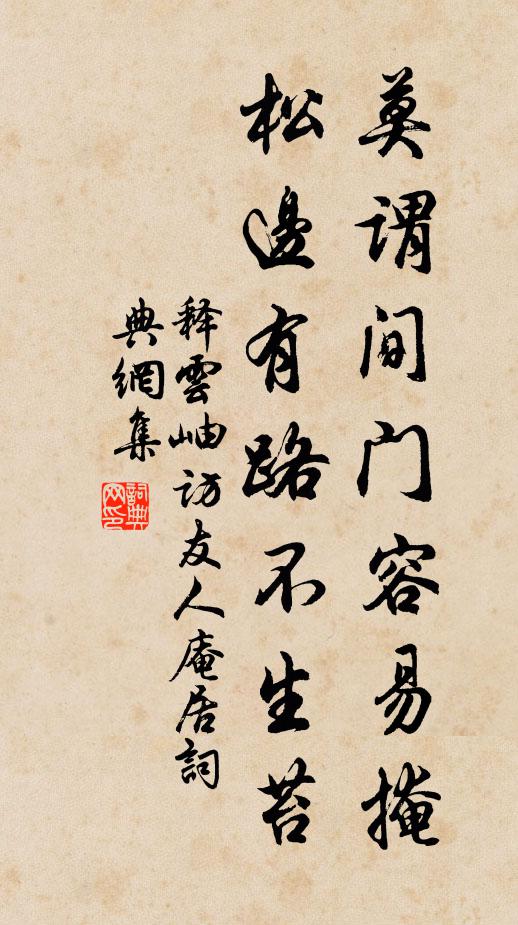 莫谓间门容易掩
松邊有路不生苔
释雲岫访友人庵居詞
典網集
詞典
网印